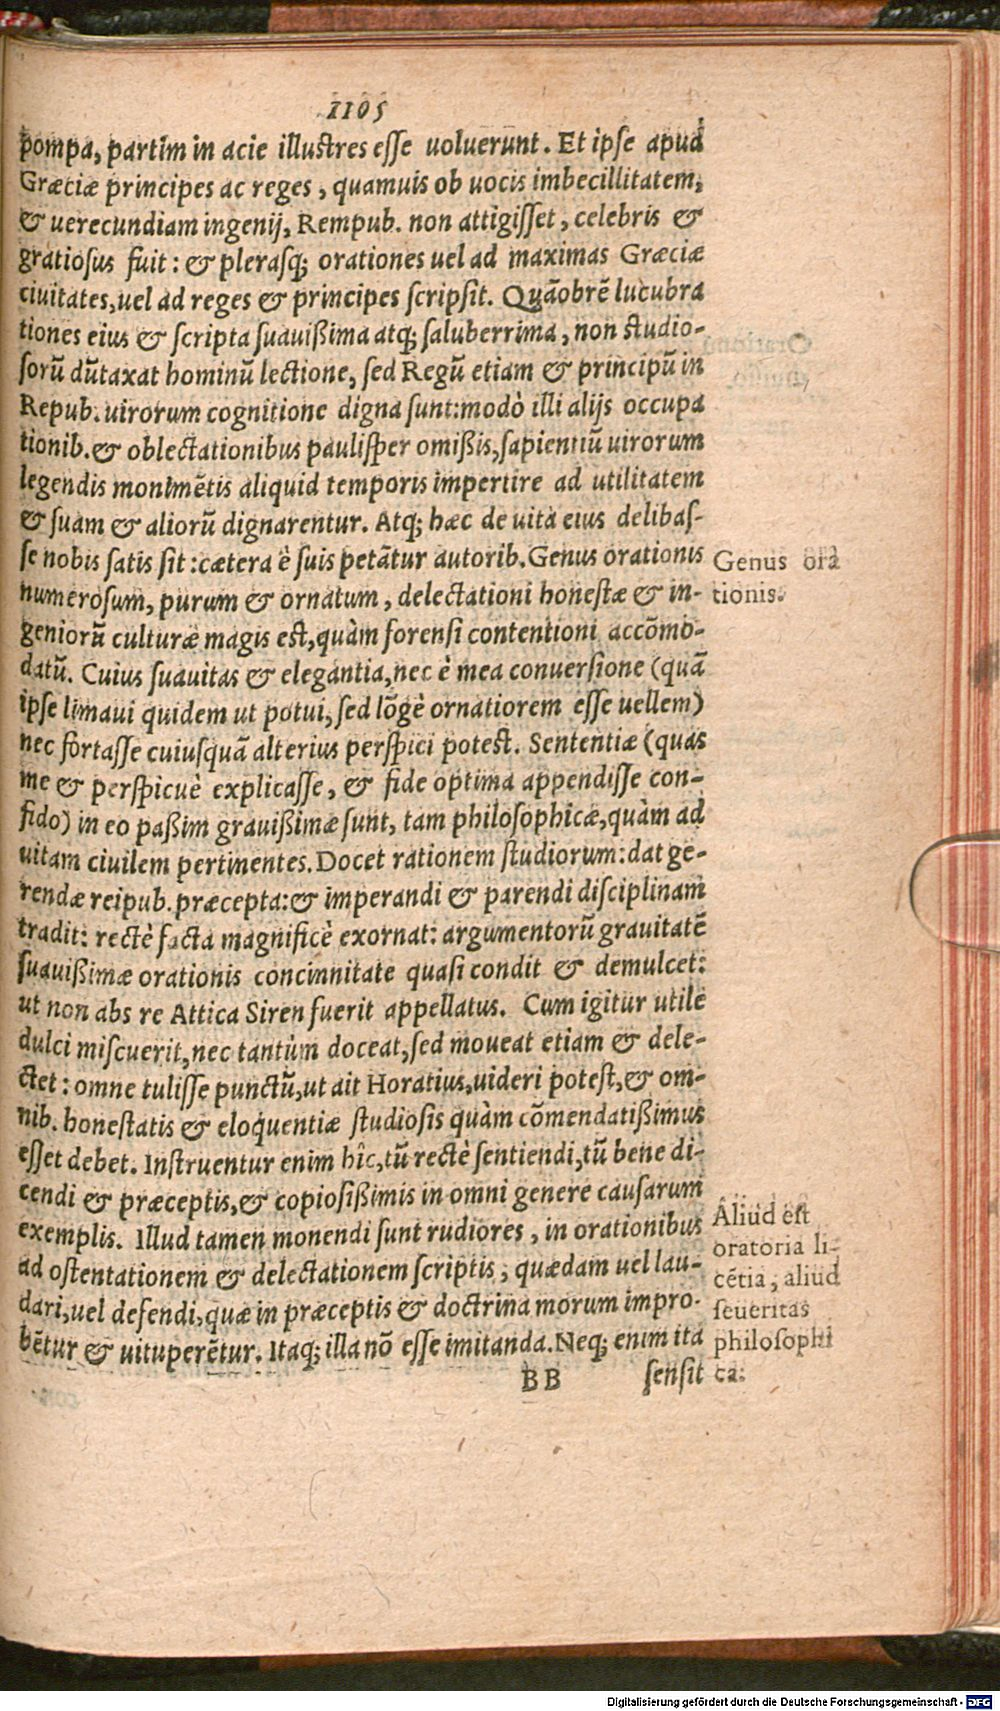 1105
pompa, partim in acie illustres esse uoluerunt. Et ipse apud
Græciæ principes ac reges, quamuis ob uocis imbecillitatem,
& uerecundiam ingenij, Rempub. non attigisset, celebris &
gratiosus fuit: & plerasq; orationes uel ad maximas Græciæ
ciuitates, uel ad reges & principes scripsit. Quãobrẽ lucubra
tiones eius & scripta suauißima atq; saluberrima, non studio-
sorũ dũtaxat hominũ lectione, sed Regũ etiam & principũ in
Repub. uirorum cognitione digna sunt: modò illi alijs occupa
tionib. & oblectationibus paulisper omißis, sapientiũ uirorum
legendis monimẽtis aliquid temporis impertire ad utilitatem
& suam & aliorũ dignarentur. Atq; hæc de uita eius delibas-
se nobis satis sit: cætera è suis petãtur autorib. Genus orationis
numerosum, purum & ornatum, delectationi honestæ & in-
geniorũ culturæ magis est, quàm forensi contentioni accõmo-
datũ. Cuius suauitas & elegantia, nec è mea conuersione (quã
ipse limaui quidem ut potui, sed lõgè ornatiorem esse uellem)
nec fortasse cuiusquã alterius perspici potest. Sententiæ (quas
me & perspicuè explicasse, & fide optima appendisse con-
fido) in eo paßim grauißimæ sunt, tam philosophicæ, quàm ad
uitam ciuilem pertinentes. Docet rationem studiorum: dat ge-
rendæ reipub. præcepta: & imperandi & parendi disciplinam
tradit: rectè facta magnificè exornat: argumentorũ grauitatẽ
suauißimæ orationis concinnitate quasi condit & demulcet:
ut non abs re Attica Siren fuerit appellatus. Cum igitur utile
dulci miscuerit, nec tantùm doceat, sed moueat etiam & dele-
ctet: omne tulisse punctũ, ut ait Horatius, uideri potest, & om-
nib. honestatis & eloquentiæ studiosis quàm cõmendatißimus
esset debet. Instruentur enim hîc, tũ rectè sentiendi, tũ bene di-
cendi & præceptis, & copiosißimis in omni genere causarum
exemplis. Illud tamen monendi sunt rudiores, in orationibus
ad ostentationem & delectationem scriptis, quædam uel lau-
dari, uel defendi, quæ in præceptis & doctrina morum impro-
bẽtur & uituperẽtur. Itaq; illa nõ esse imitanda. Neq; enim ita
BB sensit
Genus ora
tionis.
Aliud est
oratoria li-
cẽtia, aliud
seueritas
philosophi
ca:
Digitalisierung gefördert durch die Deutsche Forschungsgemeinschaft - DFG